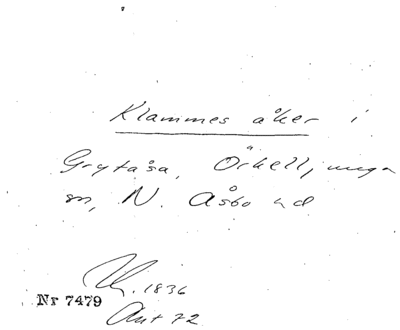 Klammes åker i
Grytåsa, Örkelljunga
sn, N. Åsbo hd
1836
Nr 7479
Ant 72